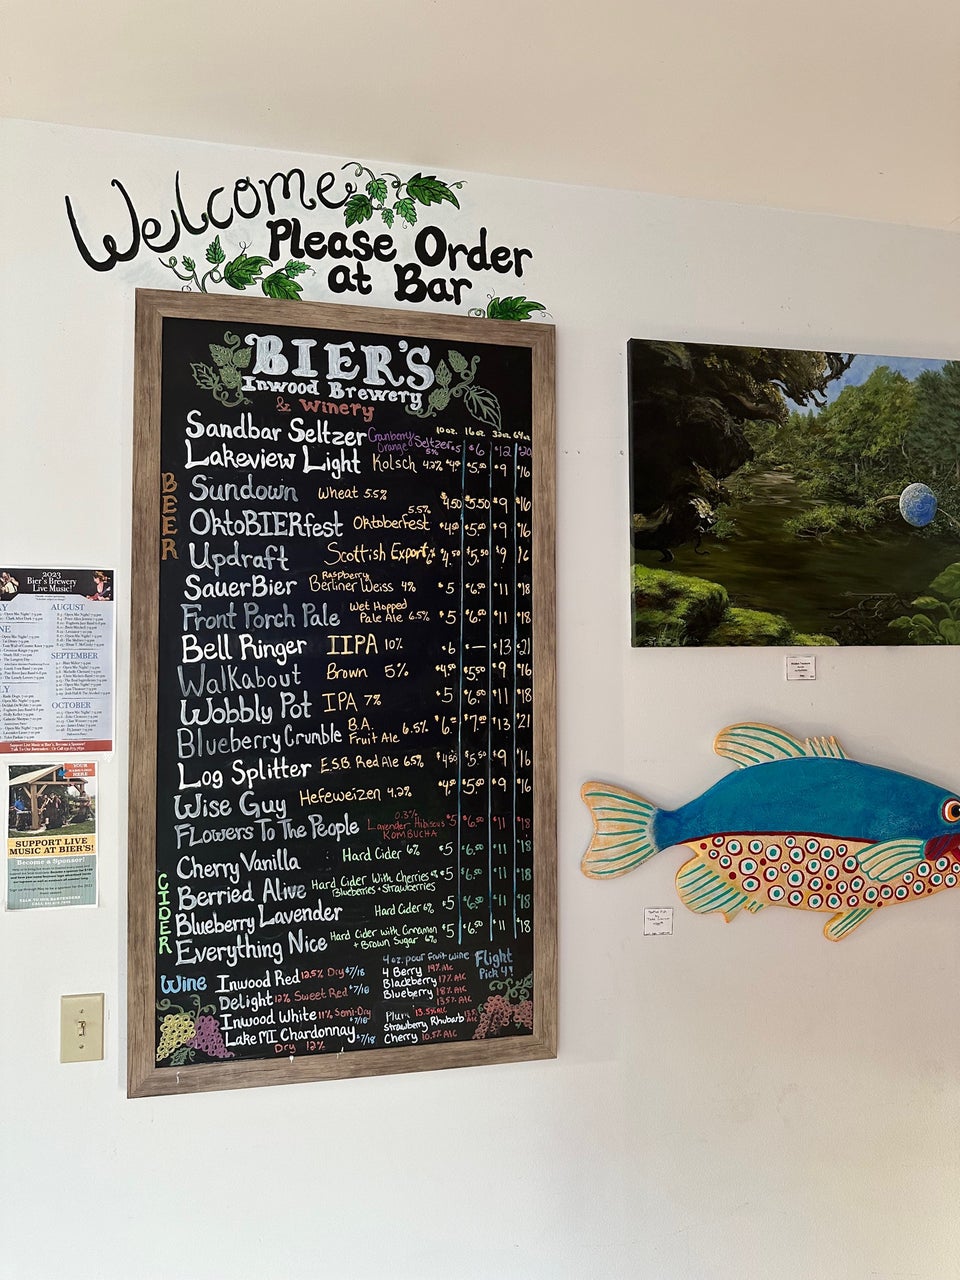 Welcome
Please Order
at Bar
BIER'S
Inwood Brewery
& Winery
10 oz. 16 oz. 32 oz. 64 oz.
Sandbar Seltzer Cranberry Orange Seltzer 5% $5 $6 $12 $20
BEER
Lakeview Light Kolsch 4.2% $5.00 $9 $16
Sundown Wheat 5.5% $4.50 $5.50 $9 $16
OktoBIERfest Oktoberfest 5.5% $5.00 $9 $16
Updraft Scottish Export 6% $4.50 $5.50 $9 16
SauerBier Raspberry Berliner Weiss 4% $5 $6.00 $11 $18
Front Porch Pale Wet Hopped Pale Ale 6.5% $5 $6.00 $11 $18
Bell Ringer IIPA 10% $6 $— $13 $21
Walkabout Brown 5% $4.50 $5.50 $9 $16
Wobbly Pot IPA 7% $5 $6.00 $11 $18
Blueberry Crumble B.A. Fruit Ale 6.5% $6.- $7.00 $13 $21
Log Splitter E.S.B. Red Ale 6.5% $4.50 $5.50 $9 $16
Wise Guy Hefeweizen 4.2% $5.00 $9 $16
Flowers To The People 0.3% Lavender Hibiscus KOMBUCHA $5 $6.00 $11 $18
CIDER
Cherry Vanilla Hard Cider 6% $5 $6.00 $11 $18
Berried Alive Hard Cider With Cherries Blueberries + Strawberries $5 $6.00 $11 $18
Blueberry Lavender Hard Cider 6% $5 $6.00 $11 $18
Everything Nice Hard Cider with Cinnamon + Brown Sugar 6% $5 $6.00 $11 $18
Wine
Inwood Red 12.5% Dry $7/18
Delight 12% Sweet Red $7/18
Inwood White 11% Semi-Dry $7/18
Lake MI Chardonnay $7/18
Dry 12%
4 oz. pour fruit wine
4 Berry 19% Alc
Blackberry 17% Alc
Blueberry 18% Alc
13.5% Alc
Plum 13.5% Alc
Strawberry Rhubarb
Cherry 10.5% Alc
Flight
Pick 4!
2023
Bier's Brewery
Live Music!
AUGUST
SEPTEMBER
OCTOBER
YOUR
HERE
SUPPORT LIVE
MUSIC AT BIER'S!
Become a Sponsor!